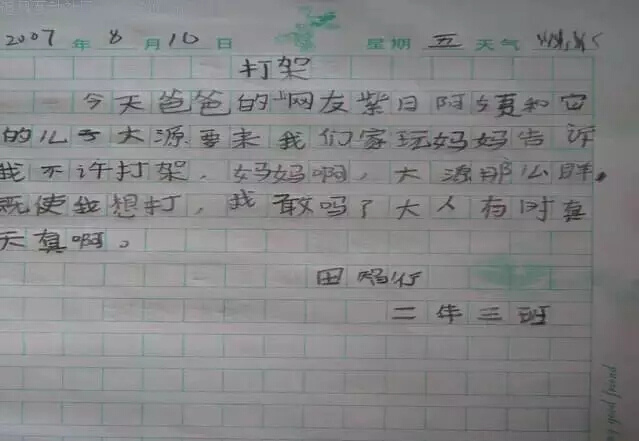 2007 年 8 月 10 日 星期 五 天气
打架
今天爸爸的"网友紫日阿姨和它
的儿子大源要来我们家玩妈妈告诉
我不许打架，妈妈啊，大源那么胖，
既使我想打，我敢吗？大人有时真
天真啊。
田
二年三班